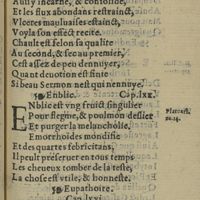 Aussy incarne, & consolide,
Et les flux abondans restrainct,
Vlceres mauluaises estainct,
Voyla son effect recité.
Chault est selon sa qualité
Au second, & sec au premier,
C'est assez de peu dennuyer,
Quant deuotion est finie
Si beau Sermon n'est qui n'ennuye.
Enblic. Cap. lxx.
ENblic est vng fruict singulier
Pour flegme, & poulmon deslier
Et purger la melancholie,
Emorrhoides mondifie
Et des quartes febricitans,
Il peult preseruer en tous temps
Les cheueux tomber de la teste,
La chose est vtile, & honneste.
Eupathoire.
Cap. lxxi.
20.24.